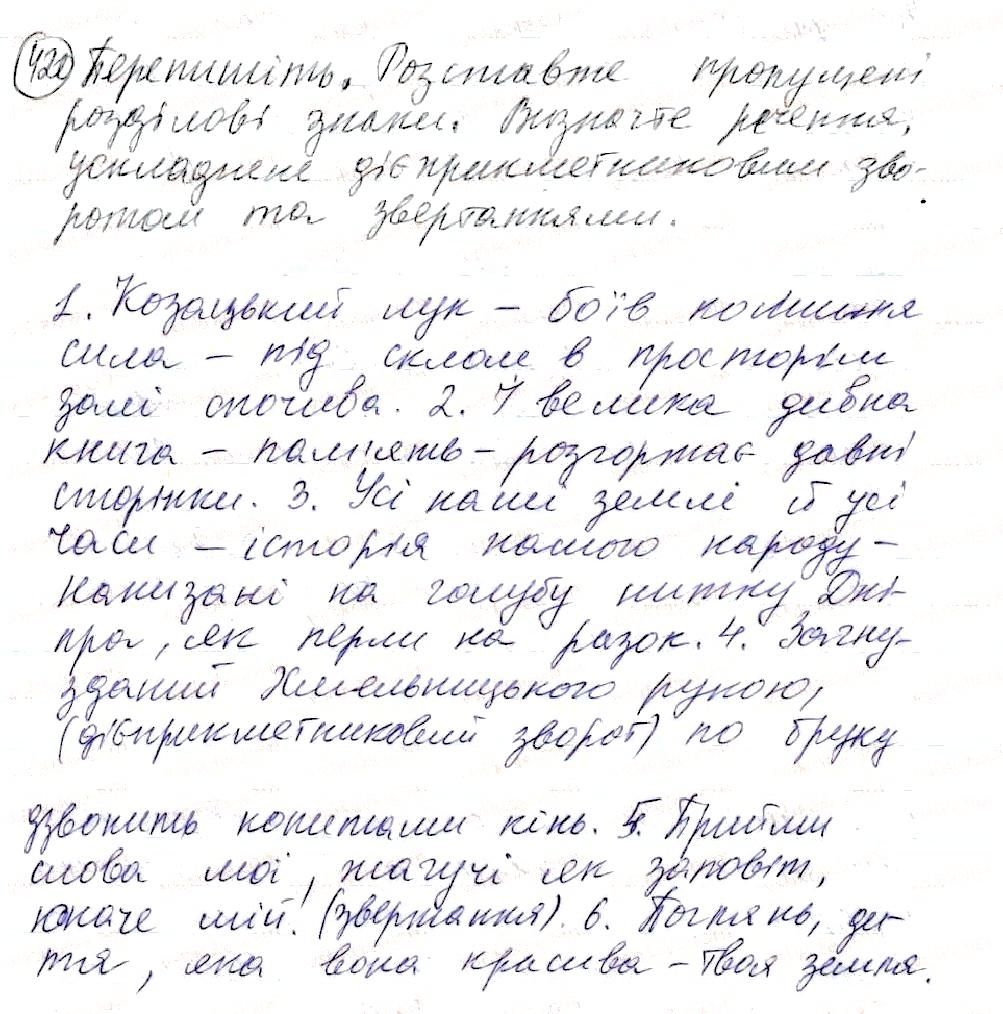 420 Перепишіть. Розставте пропущені
розділові знаки. Визначте речення,
ускладнене дієприкметниковим зво-
ротом та звертаннями.
1. Козацький лук – боїв колишня
сила – під склом в просторім
залі спочива. 2. Й велика дивна
книга – пам'ять – розгортає давні
сторінки. 3. Усі наші землі й усі
часи – історія нашого народу –
нанизані на голубу нитку Дні-
пра, як перли на разок. 4. Загну-
зданий Хмельницького рукою,
(дієприкметниковий зворот) по бруку
дзвонить копитами кінь. 5. Прийми
слова мої, жагучі як заповіт,
юначе мій! (звертання). 6. Поглянь, ди-
тя, яка вона красива – твоя земля.